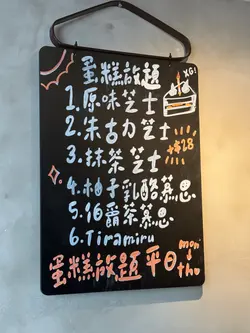 蛋糕放題
XG!
1.原味芝士
2.朱古力芝士
+$28
3.抹茶芝士
4.柚子乳酪慕思
5.伯爵茶慕思
6.Tiramiru
蛋糕放題平日
mon
thu